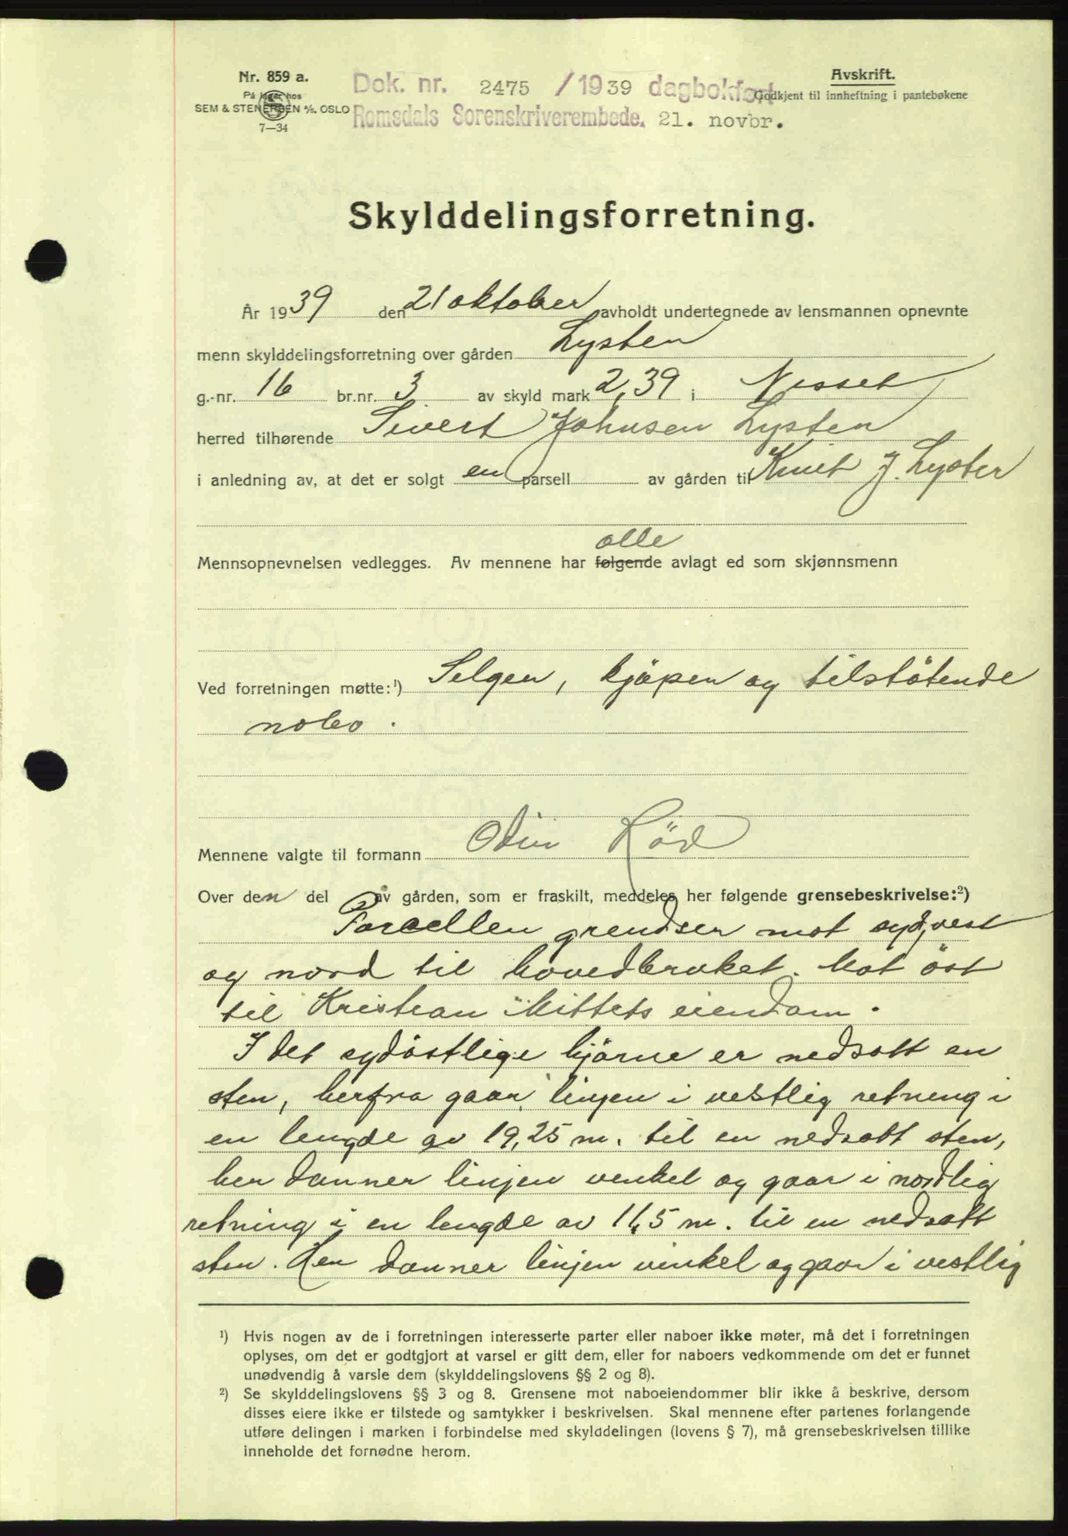 Nr. 859 a.
På lager hos
SEM & STENERSEN A/S. OSLO
7—34
Dok. nr. 2475 /1939 dagbokført
Romsdals Sorenskriverembede. 21. novbr.
Avskrift.
Godkjent til innheftning i pantebøkene
Skylddelingsforretning.
År 1939 den 21 oktober avholdt undertegnede av lensmannen opnevnte
menn skylddelingsforretning over gården Lysten
g.-nr. 16 br.nr. 3 av skyld mark 2,39 i Nesset
herred tilhørende Sivert Johnsen Lysten
i anledning av, at det er solgt en parsell av gården til Knut J. Lysten
alle
Mennsopnevnelsen vedlegges. Av mennene har følgende avlagt ed som skjønnsmenn
Ved forretningen møtte:¹) Selgen, kjöpen og tilstötende
nabo.
Mennene valgte til formann Odin Röd
Over den del av gården, som er fraskilt, meddeles her følgende grensebeskrivelse:²)
Parcellen grendser mot syd, vest
og nord til hovedbruket. Mot öst
til Kristian Mittets eiendom.
I det sydöstlige hjörne er nedsatt en
sten, herfra gaar linjen i vestlig retning i
en lengde av 19,25 m. til en nedsatt sten,
her danner linjen venkel og gaar i nordlig
retning i en lengde av 11,5 m. til en nedsatt
sten. Her danner linjen vinkel og gaar i vestlig
¹) Hvis nogen av de i forretningen interesserte parter eller naboer ikke møter, må det i forretningen
oplyses, om det er godtgjort at varsel er gitt dem, eller for naboers vedkommende om det er funnet
unødvendig å varsle dem (skylddelingslovens §§ 2 og 8).
²) Se skylddelingslovens §§ 3 og 8. Grensene mot naboeiendommer blir ikke å beskrive, dersom
disses eiere ikke er tilstede og samtykker i beskrivelsen. Skal mennene efter partenes forlangende
utføre delingen i marken i forbindelse med skylddelingen (lovens § 7), må grensebeskrivelsen tillike
inneholde det fornødne herom.